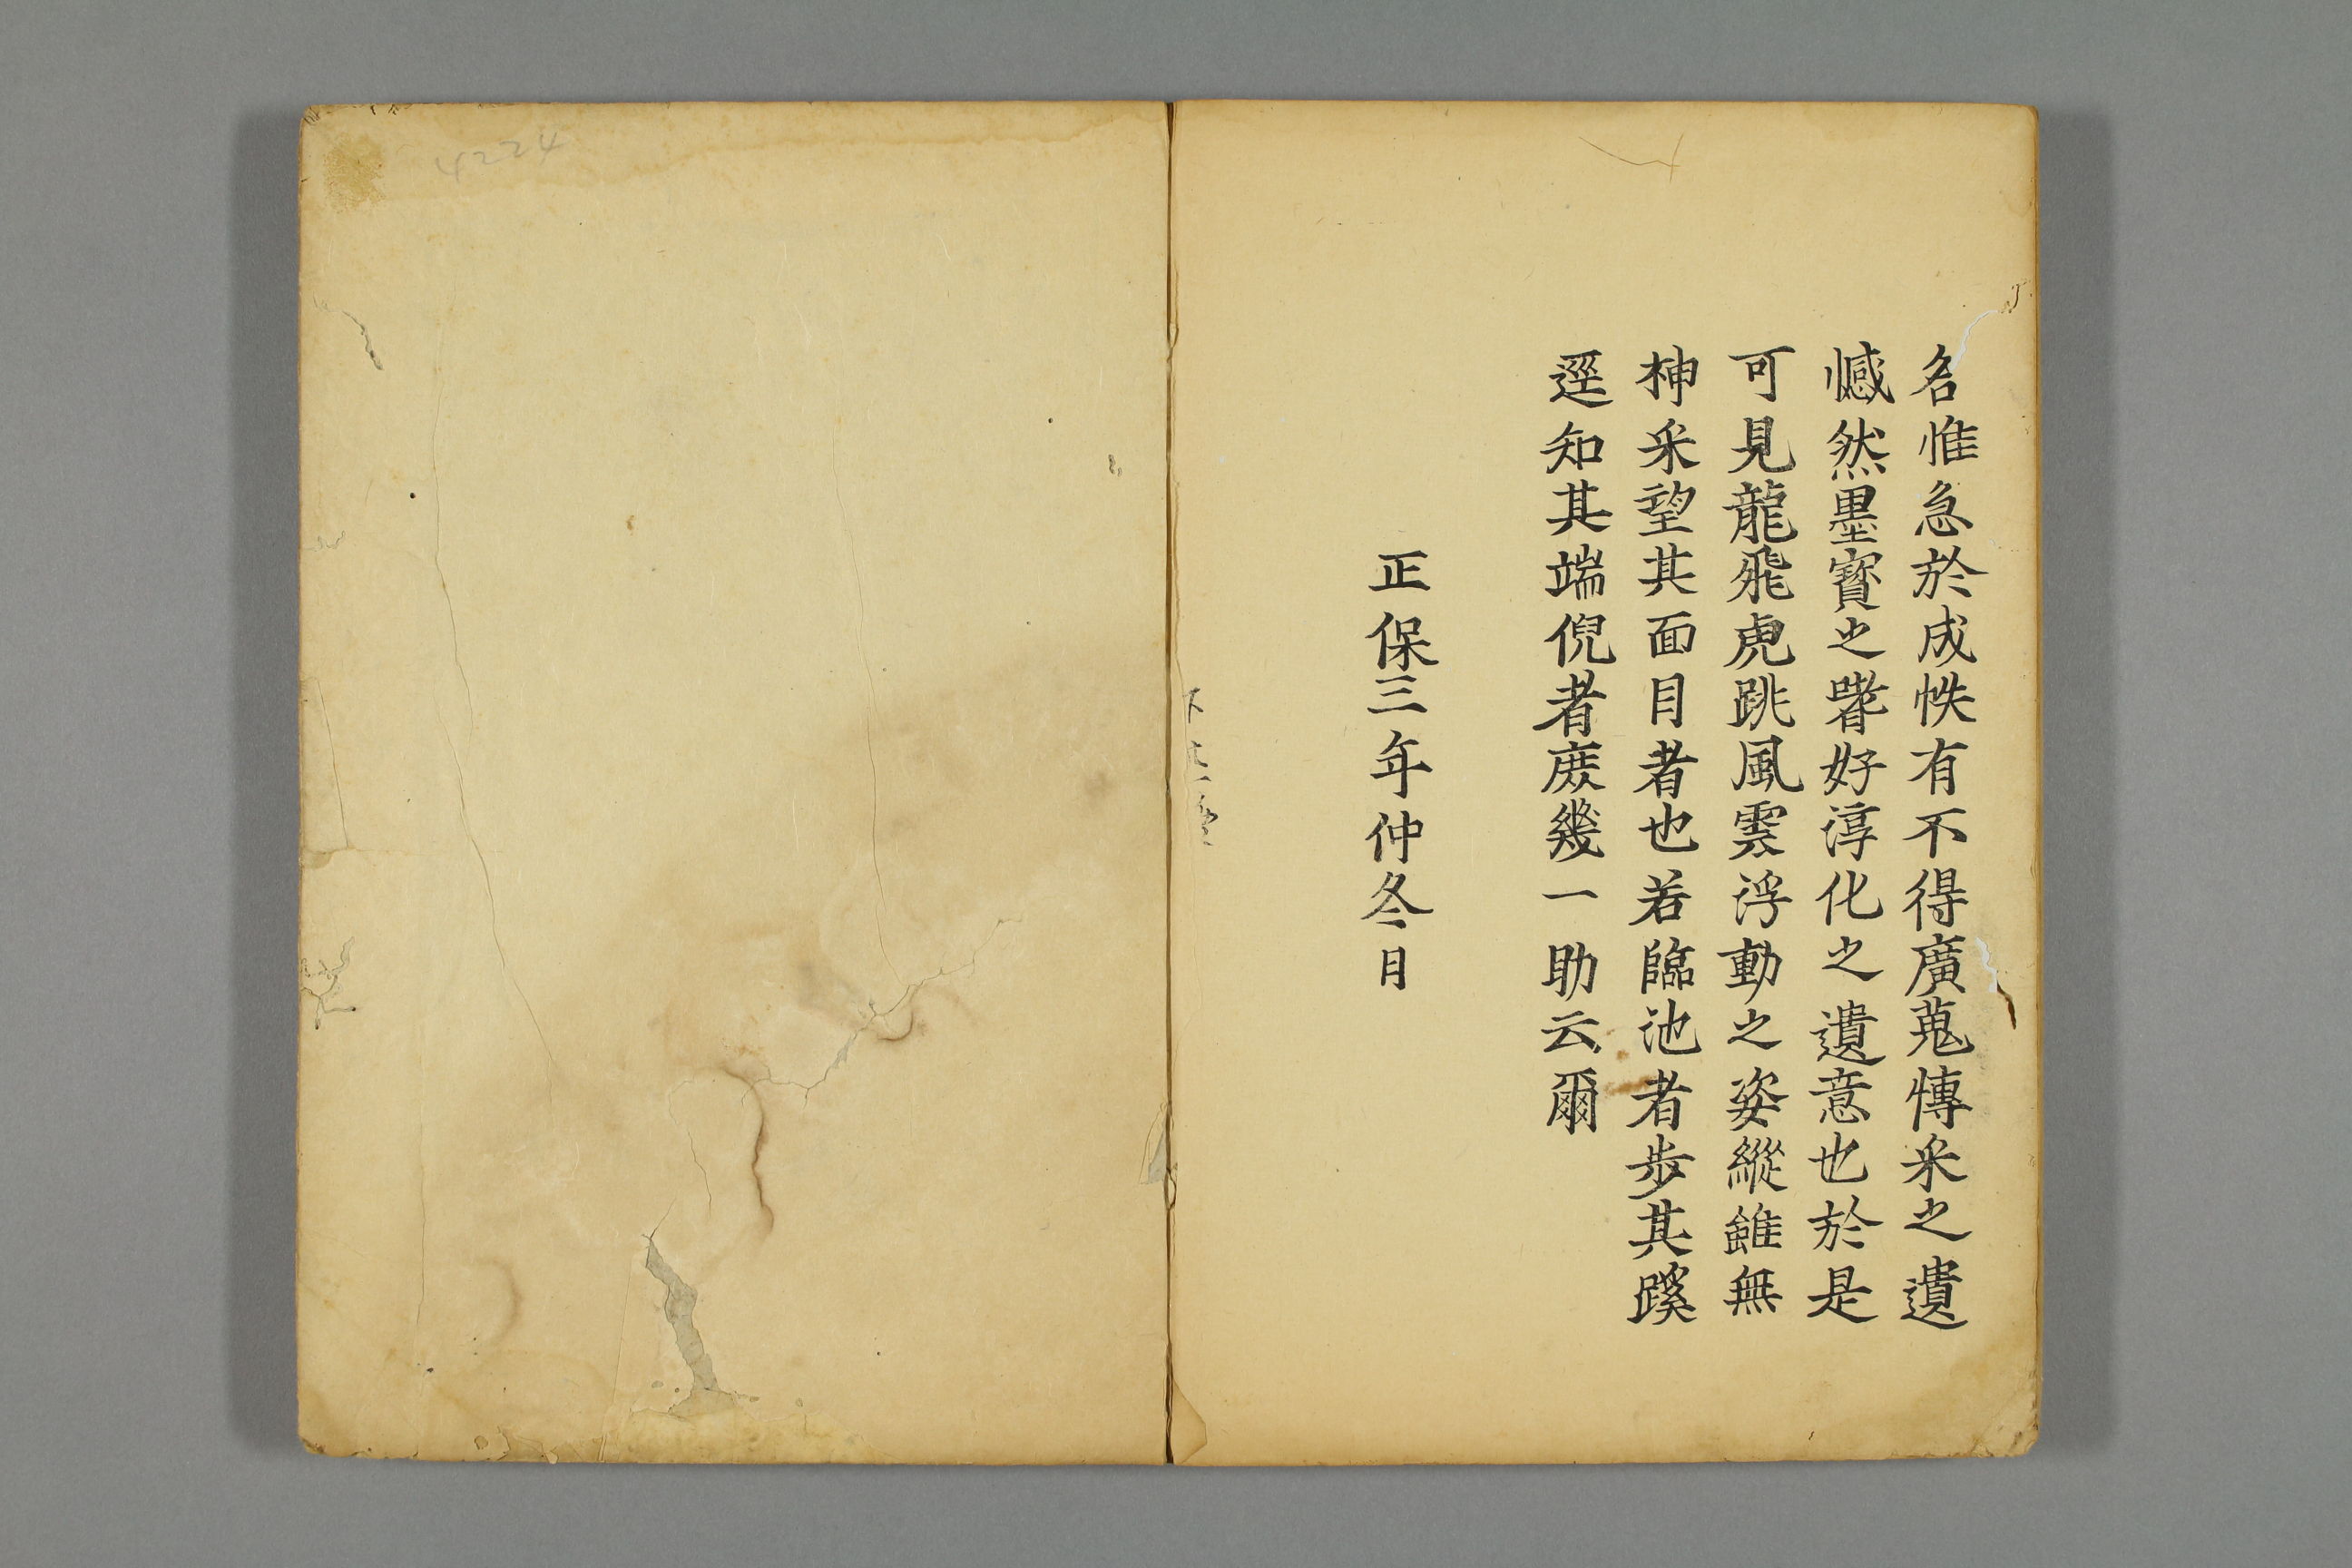 名惟急於成帙有不得廣蒐博采之遺
憾然墨寶之嗜好淳化之遺意也於是
可見龍飛虎跳風雲浮動之姿縱雖無
神采望其面目者也若臨池者步其蹊
逕知其端倪者庶幾一助云爾
正保三年仲冬月
4224